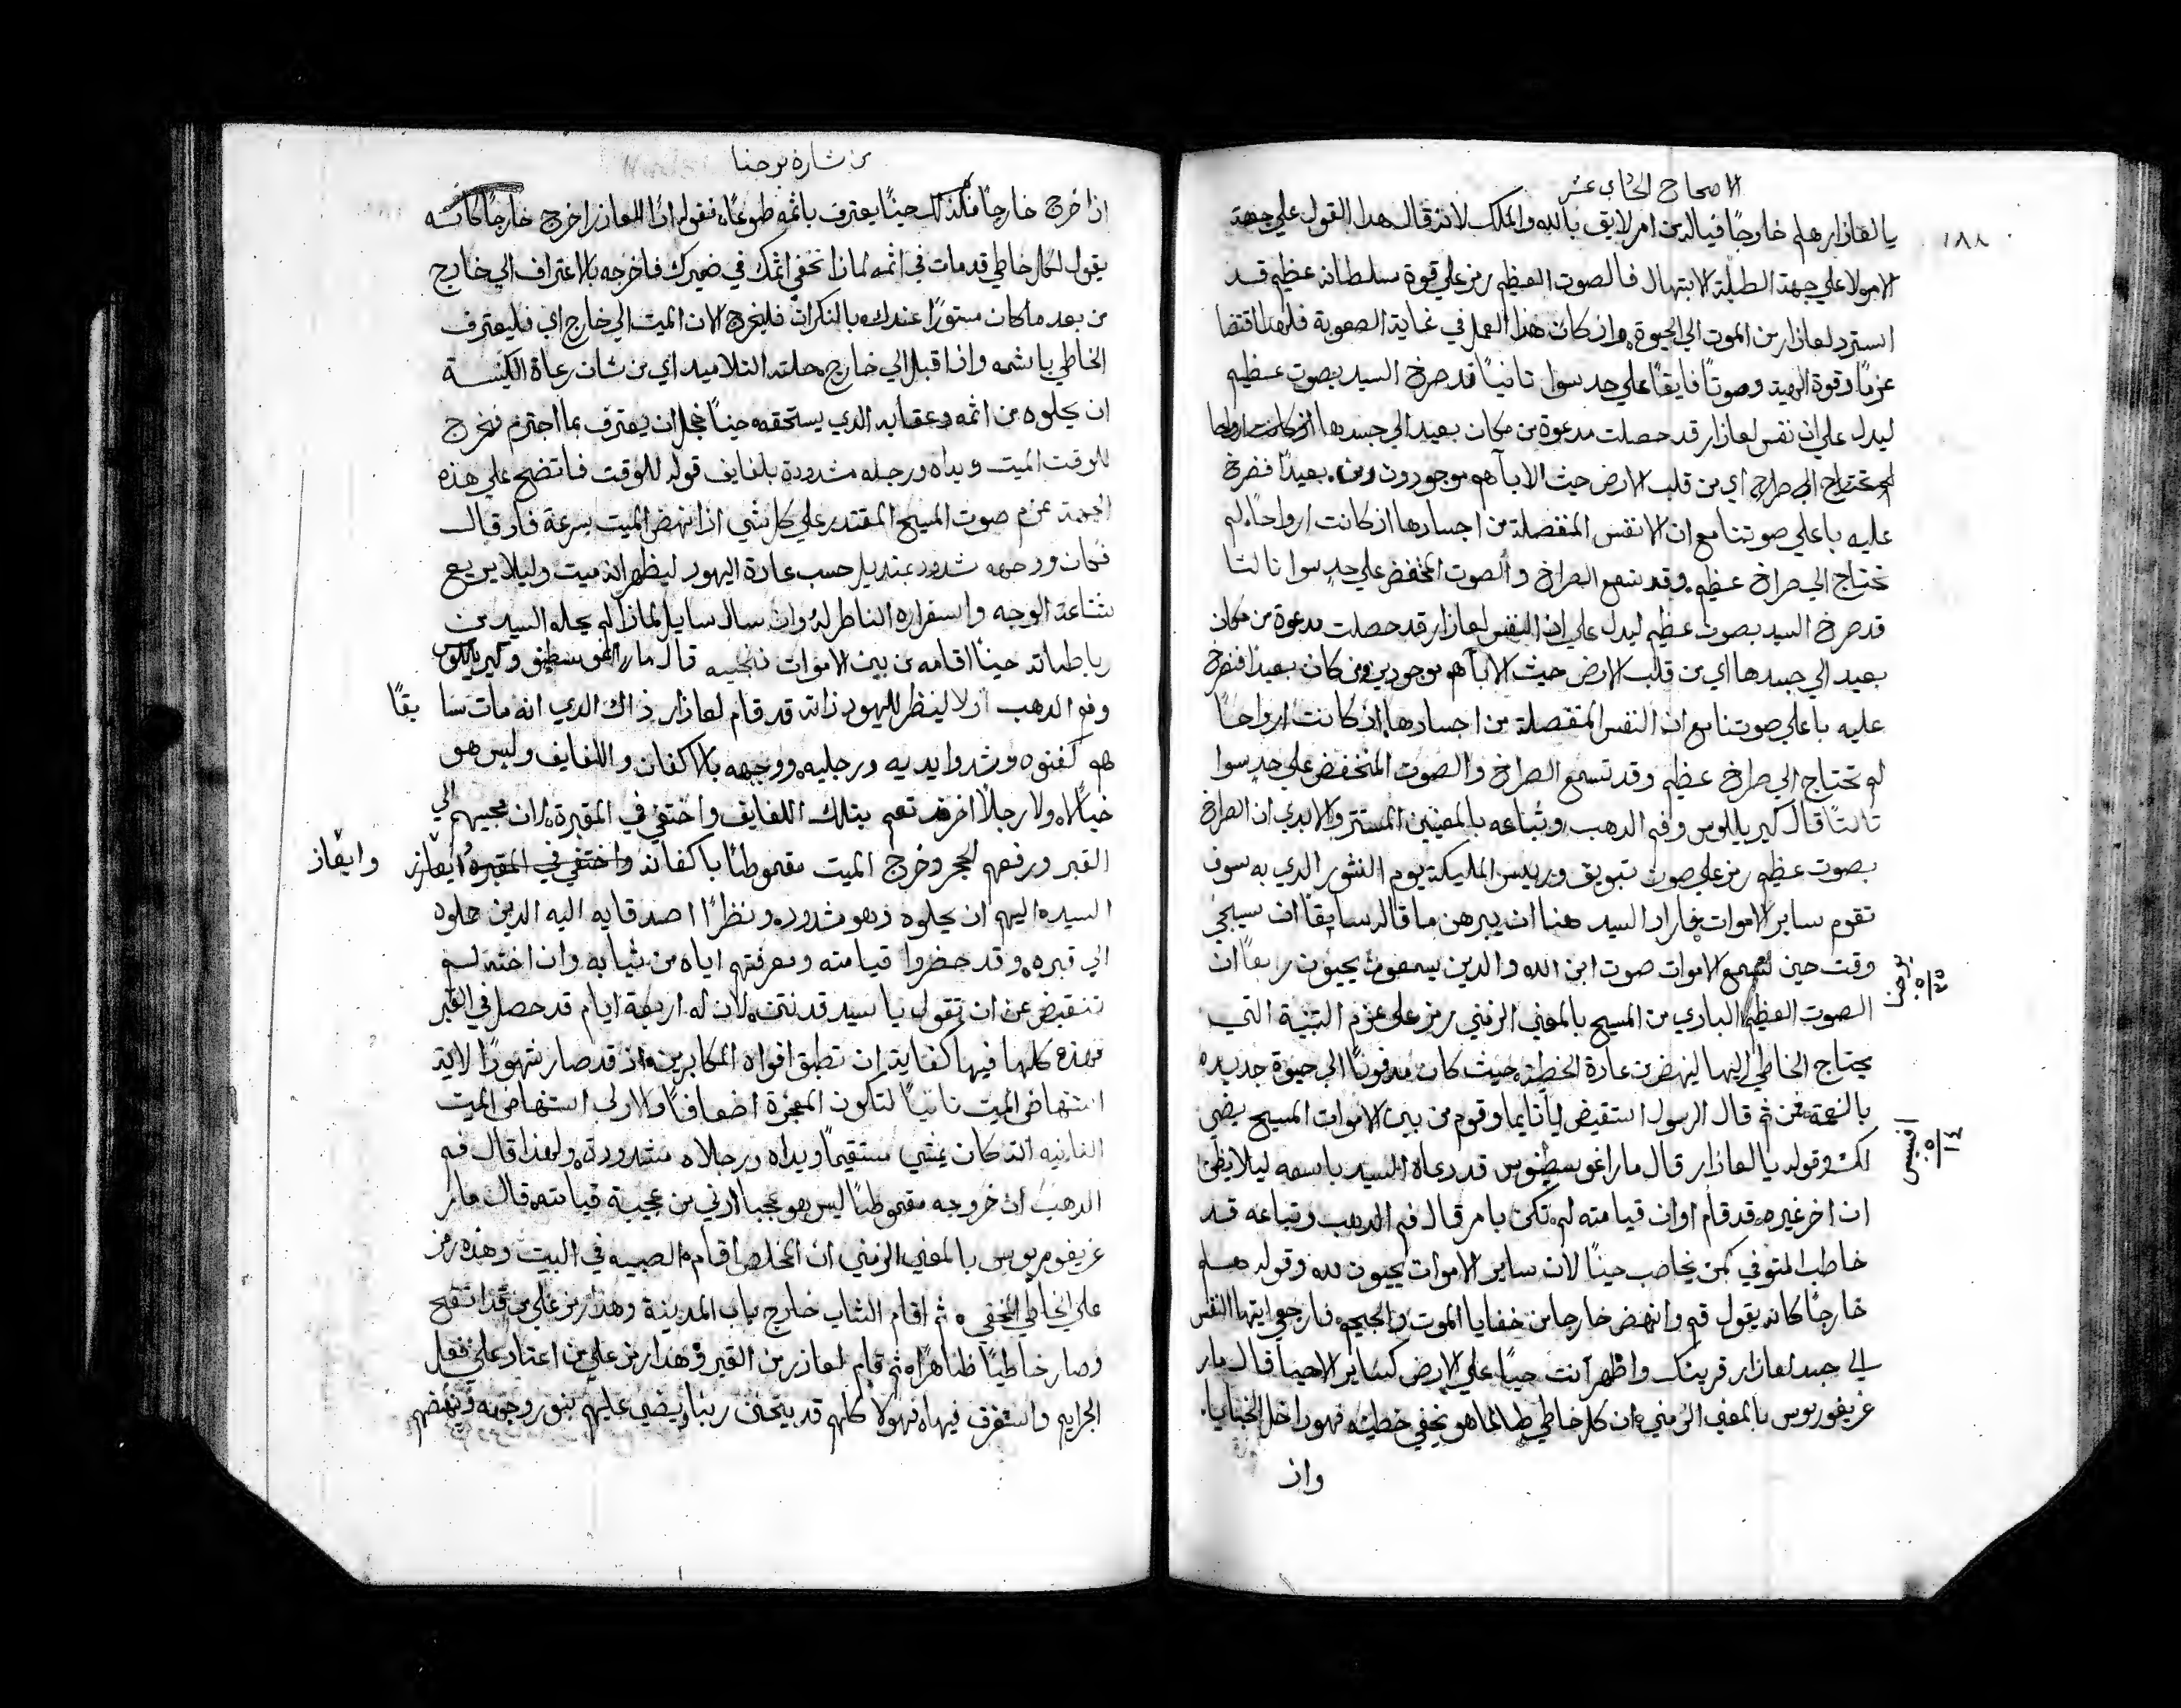 الاصحاح الحادي عشر
١٨٨
يا لعازار هلم خارجًا فيالدين امر لايق بالله والملك لانه قال هدا القول علي جهة
الامر لا علي جهة الطلبة الابتهال فالصوت العظيم رمز علي قوة سلطانه عظيم قد
استرد لعازار من الموت الي الحيوة وان كان هذا العمل في غاية الصعوبة فلهدا اقتضا
عزمًا وقوة الهية وصوتًا فايقًا علي حد سوا تانيًا قد صرخ السيد بصوت عظيم
ليدل علي ان نفس لعازار قد حصلت مدعوة من مكان بعيد الي جسدها
اي من قلب الارض حيث الابآ هم موجودون بعيدًا فصرخ
عليه باعلي صوتنا مع ان الانفس المنفصلة من اجسادها اذ كانت ارواحًا لم
تحتاج الي صراخ عظيم وقد تسمع الصراخ والصوت المخفض علي حدٍ سوا تالتا
قد صرخ السيد بصوت عظيم ليدل علي ان النفس لعازار قد حصلت مدعوة من مكان
بعيد الي جسدها اي من قلب الارض حيث الابآ هم موجودين ومن كان بعيدا فنصرخ
عليه باعلي صوتنا مع ان النفس المنفصلة من اجسادها اذ كانت ارواحًا
لم تحتاج الي صراخ عظيم وقد تسمع الصراخ والصوت المنخفض علي حدٍ سوا
تالتًا قال كيريللوس وفم الدهب وتباعه بالمعنيين المستتر والابدي ان الصراخ
بصوت عظيم رمز علي صوت تبويق وريس المليكة يوم النشور الدي به سوف
تقوم ساير الاموات فاراد السيد هنا ان يبرهن ما قاله سابقًا ان سيجي
وقت حين تسمع الاموات صوت ابن الله والدين يسمعون يحيون رابعًا ان
يوحنا ٥/٢٥
الصوت العظيم البادي من المسيح بالمعني الرمزي رمز علي عزم التنبية التي
يحتاج الخاطي اليها لينهض من عادة الخطية حيث كان مدفونًا الي حيوة جديده
بالنعمة فمن ثم قال الرسول استقيض يا نايما وقوم من بين الاموات المسيح يضي
افسس ٥/١٤
لك وقوله يا لعازار قال مار اغوسطينوس قد دعاه السيد باسمه ليلا يظن
ان اخر غيره قد قام او ان قيامته لم تكن بامر قال فم الدهب وتباعه قد
خاطب المتوفي كمن يخاطب حيًا لان ساير الاموات يحيون لله وقوله هلم
خارجًا كانه يقول قم وانهض خارجا من خفايا الموت والجحيم فارجعي ايتها النفس
الي جسد لعازار قرينك واظهر انت حيًا علي الارض كساير الاحيا قال مار
غريغوريوس بالمعني الرمزي ان كل خاطي طالما هو يخفي خطيته فهو داخل الخبايا
وان
من بشارة يوحنا
اذا خرج خارجًا فلذلك حينًا يعترف باثمه طوعًا فقوله اذًا لعازر اخرج خارجًا كانه
يقول لكل خاطي قد مات في اثمه لماذا تخفي اثمك في ضميرك فاخرجه بالاعتراف الي خارج
من بعد ما كان مستورًا عندك بالنكران فليخرج الان الميت الي خارج اي فليعترف
الخاطي باثمه واذا اقبل الي خارج حلته التلاميد اي من شان رعاة الكنيسة
ان يحلوه من اثمه وعقابه الدي يستحقه حينًا خجل ان يعترف بما اجترم فخرج
للوقت الميت ويداه ورجله مشدودة بلفايف قوله للوقت فاتضح علي هذه
الجهة عزم صوت المسيح المقتدر علي كل شي اذا نهض الميت بسرعة فاد قال
فكان ووجهه مشدود بمنديل حسب عادة اليهود ليظهر انه ميت وليلا يريع
شناعة الوجه واسفراره الناظر له وان سال سايل لماذا لم يحله السيد من
رباطاته حينًا اقامه من بين الاموات فنجيبه قال مار اغوسطينوس وكيريللوس
وفم الدهب اولا لينظر لليهود ذاته قد قام لعازار ذاك الدي انه مات سابقًا
هم كفنوه وشدوا يديه ورجليه ووجهه بالاكفان واللفايف وليس هو
خيالا ولا رجلاً اخر قد تعمم بتلك اللفايف واختفي في المقبرة ان مجيهم الي
القبر ورفعهم الحجر وخروج الميت مقموطًا باكفانه واختفي في المقبره وايعاز
السيد اليهم ان يحلوه وهو مشدود ونظرًا اصدقايه اليه الدين حملوه
الي قبره وقد حضروا قيامته ومعرفتهم اياه من ثيابه وان اخته لم
تنقبض عن ان تقول يا سيد قد نتن لان له اربعة ايام قد حصل في القبر
فهذه كلها فيها كفاية ان تطبق افواه المكابرين واذ قد صار مشهورًا لاية
استنهاض الميت تانيًا لتكون المعجزة اضعافًا والاولي استنهاض الميت
التانيه انه كان يمشي مستقيمًا ويداه ورجلاه مشدودة ولهذا قال فم
الدهب ان خروجه مقموطًا ليس هو عجبا ادني من عجيبة قيامته قال مار
غريغوريوس بالمعني الرمزي ان المخلص اقام الصبيه في البيت وهذه رمز
علي الخاطي المخفي ثم اقام الشاب خارج باب المدينة وهذا رمز علي من قد اتضح
وصار خاطيًا ظاهرًا ثم قام لعازر من القبر وهدا رمز علي من اعتاد علي فعل
الجرايم واستغرق فيها فهولا كلهم قد يتحنن ربنا ويضي عليهم بنور وجهه وينهضهم